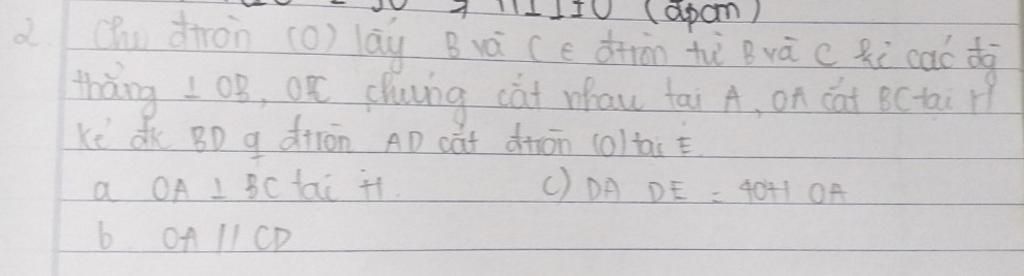 (đpcm)
2 Cho đtròn (O) lấy B và C ∈ đtròn từ B và C kẻ các đg
thẳng ⊥ OB, OC chúng cắt nhau tại A, OA cắt BC tại H
Kẻ đk BD q đtròn AD cắt đtròn (O) tại E
a OA ⊥ BC tại H. c) DA DE = 4OH OA
b OA // CD